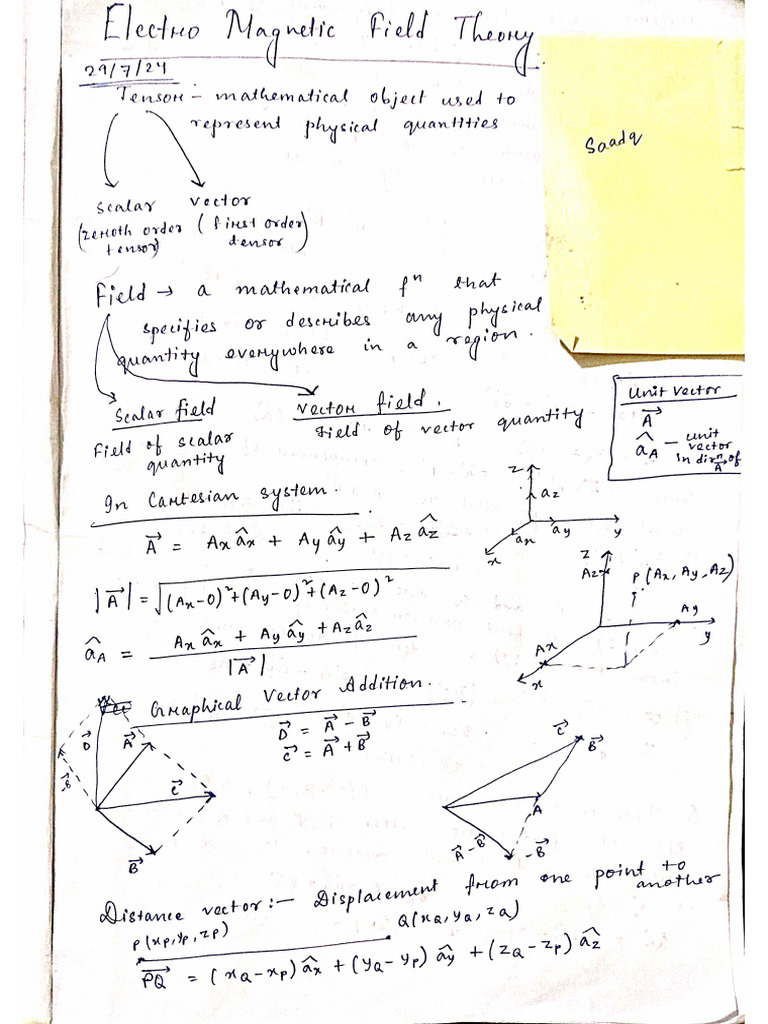 Electro Magnetic Field Theory
29/7/24
Tensor :- mathematical object used to
represent physical quantities
Saadq
scalar vector
(zeroth order tensor) (first order tensor)
Field → a mathematical fⁿ that
specifies or describes any physical
quantity everywhere in a region.
Scalar field Vector field.
Field of scalar quantity
Field of vector quantity
Unit Vector
A⃗
â_A - unit vector in dirⁿ of A⃗
In Cartesian system.
A⃗ = Ax âx + Ay ây + Az âz
z
az
ax
ay
y
x
|A⃗| = √((Ax-0)²+(Ay-0)²+(Az-0)²)
z
Az
P(Ax, Ay, Az)
Ay
y
Ax
x
â_A = (Ax âx + Ay ây + Az âz) / |A⃗|
Graphical Vector Addition.
D⃗ = A⃗ - B⃗
C⃗ = A⃗ + B⃗
D⃗
A⃗
-B⃗
C⃗
B⃗
C⃗
B⃗
A
A⃗-B⃗
-B⃗
Distance vector:- Displacement from one point to another
P(xp, yp, zp)
Q(xQ, yQ, zQ)
PQ⃗ = (xQ-xp) âx + (yQ-yp) ây + (zQ-zp) âz